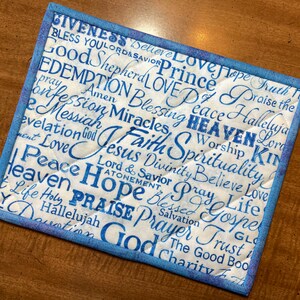 GIVENESS Believe Love Hope Truth
BLESS YOU LORD & SAVIOR
Good Shepherd LOVE Prince Praise the
EDEMPTION Blessing Peace Halleluja
Confession Amen
Messiah Miracles HEAVEN Lord
evelation God Faith Worship KIN
Love Jesus Spirituality
Peace Divinity Believe Love
Heaven Hope Lord & Savior Pray Life
ATONEMENT
Life Holy PRAISE Blessed Gospel
Hallelujah Salvation
Devotion Prayer Trust GLO
God The Good Boo
Charity